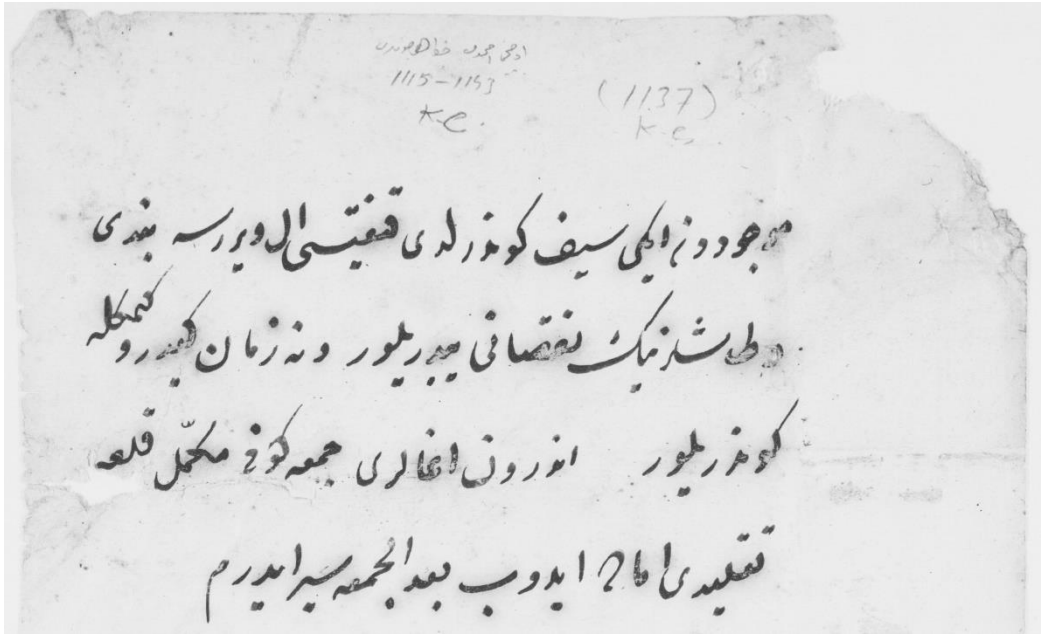 1115-1143
(1137)
K.e.
K.e.
موجوددن ایکی سیف کوندرلدی قنغیسی ال ویررسه بندی
نقصانی ویریلور ونه زمان کیدر
کوندریلور اندرون اغالری جمعه کونی مکمل قلعه
تقلیدی اماج ایدوب بعد الجمعه سیر ایدرم